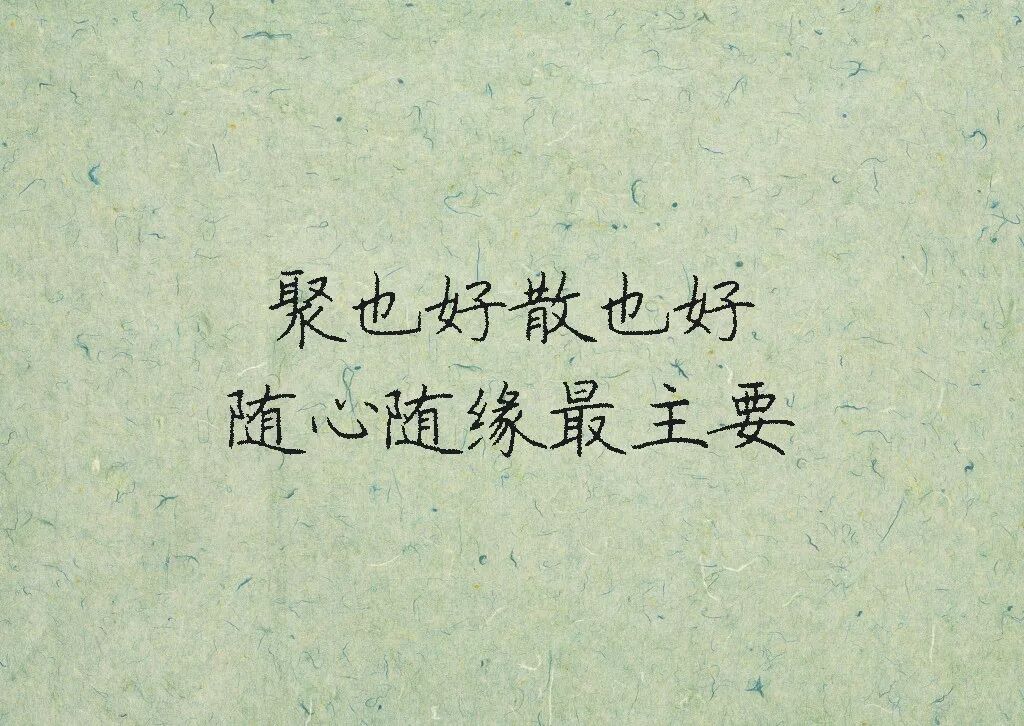 聚也好散也好
随心随缘最主要